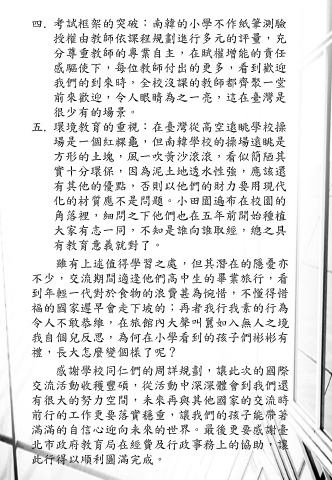 四. 考試框架的突破：南韓的小學不作紙筆測驗
授權由教師依課程規劃進行多元的評量，充
分尊重教師的專業自主，在賦權增能的責任
感驅使下，每位教師付出的更多，看到歡迎
我們的到來時，全校沒課的教師都齊聚一堂
前來歡迎，令人眼睛為之一亮，這在臺灣是
很少有的場景。
五. 環境教育的重視：在臺灣從高空遠眺學校操
場是一個紅粿龜，但南韓學校的操場遠眺是
方形的土塊，風一吹黃沙滾滾，看似簡陋其
實十分環保，因為泥土地透水性強，應該還
有其他的優點，否則以他們的財力要用現代
化的材質應不是問題。小田園遍布在校園的
角落裡，細問之下他們也在五年前開始種植
大家有志一同，不知是誰向誰取經，總之具
有教育意義就對了。
雖有上述值得學習之處，但其潛在的隱憂亦
不少，交流期間適逢他們高中生的畢業旅行，看
到年輕一代對於食物的浪費甚為惋惜，不懂得惜
福的國家遲早會走下坡的；再者我行我素的行為
令人不敢恭維，在旅館內大聲叫囂如入無人之境
我自個兒反思，為何在小學看到的孩子們彬彬有
禮，長大怎麼變個樣了呢？
感謝學校同仁們的周詳規劃，讓此次的國際
交流活動收穫豐碩，從活動中深深體會到我們還
有很大的努力空間，未來再與其他國家的交流時
前行的工作更要落實穩重，讓我們的孩子能帶著
滿滿的自信心迎向未來的世界。最後更要感謝臺
北市政府教育局在經費及行政事務上的協助，讓
此行得以順利圓滿完成。